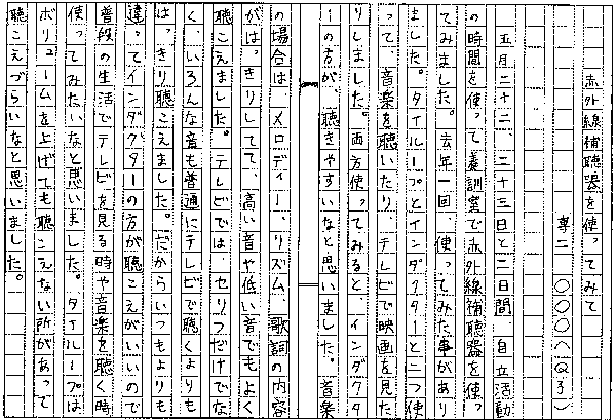 赤外線補聴器を使ってみて
専二 〇〇〇(Q子)
五月二十二、二十三日と二日間、自立活動
の時間を使って養訓室で赤外線補聴器を使っ
てみました。去年一回、使ってみた事があり
ました。タイループとインダクターと二つ使
って、音楽を聴いたり、テレビで映画を見た
りしました。両方使ってみると、インダクタ
ーの方が、聴きやすいなと思いました。音楽
の場合は、メロディー、リズム、歌詞の内容
がはっきりしてて、高い音や低い音でもよく
聴こえました。テレビでは、セリフだけでな
く、いろんな音も普通にテレビで聴くよりも
はっきり聴こえました。だからいつもよりも
違ってインダクターの方が聴こえがいいので
普段の生活でテレビを見る時や音楽を聴く時
使ってみたいなと思いました。タイループは
ボリュームを上げても聴こえない所があって
聴こえづらいなと思いました。